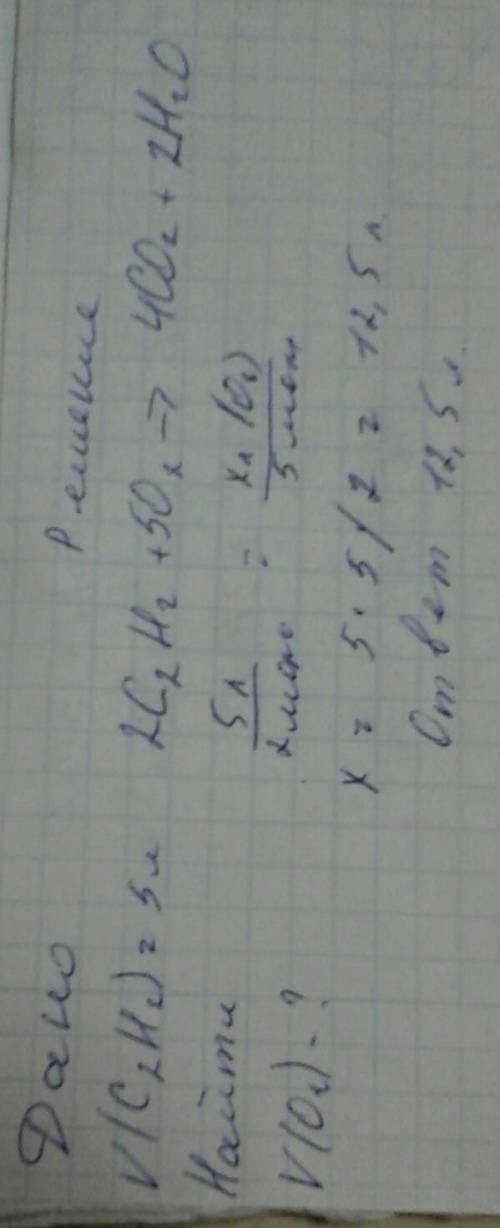 Дано
V(C₂H₂) = 5 л
Найти
V(O₂) - ?
Решение
2C₂H₂ + 5O₂ → 4CO₂ + 2H₂O
5 л / 2 моль = x л (O₂) / 5 моль
x = 5 · 5 / 2 = 12,5 л
Ответ 12,5 л.